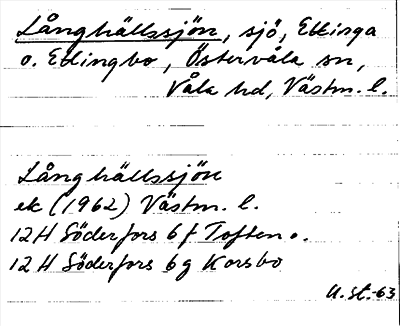 Långhällssjön, sjö, Ettinga
o. Edingbo, Östervåla sn,
Våla hd, Västm. l.
Långhällssjön
ek (1962) Västm. l.
12H Söderfors 6f Toften o.
12H Söderfors 6g Korsbo
U.St.-63